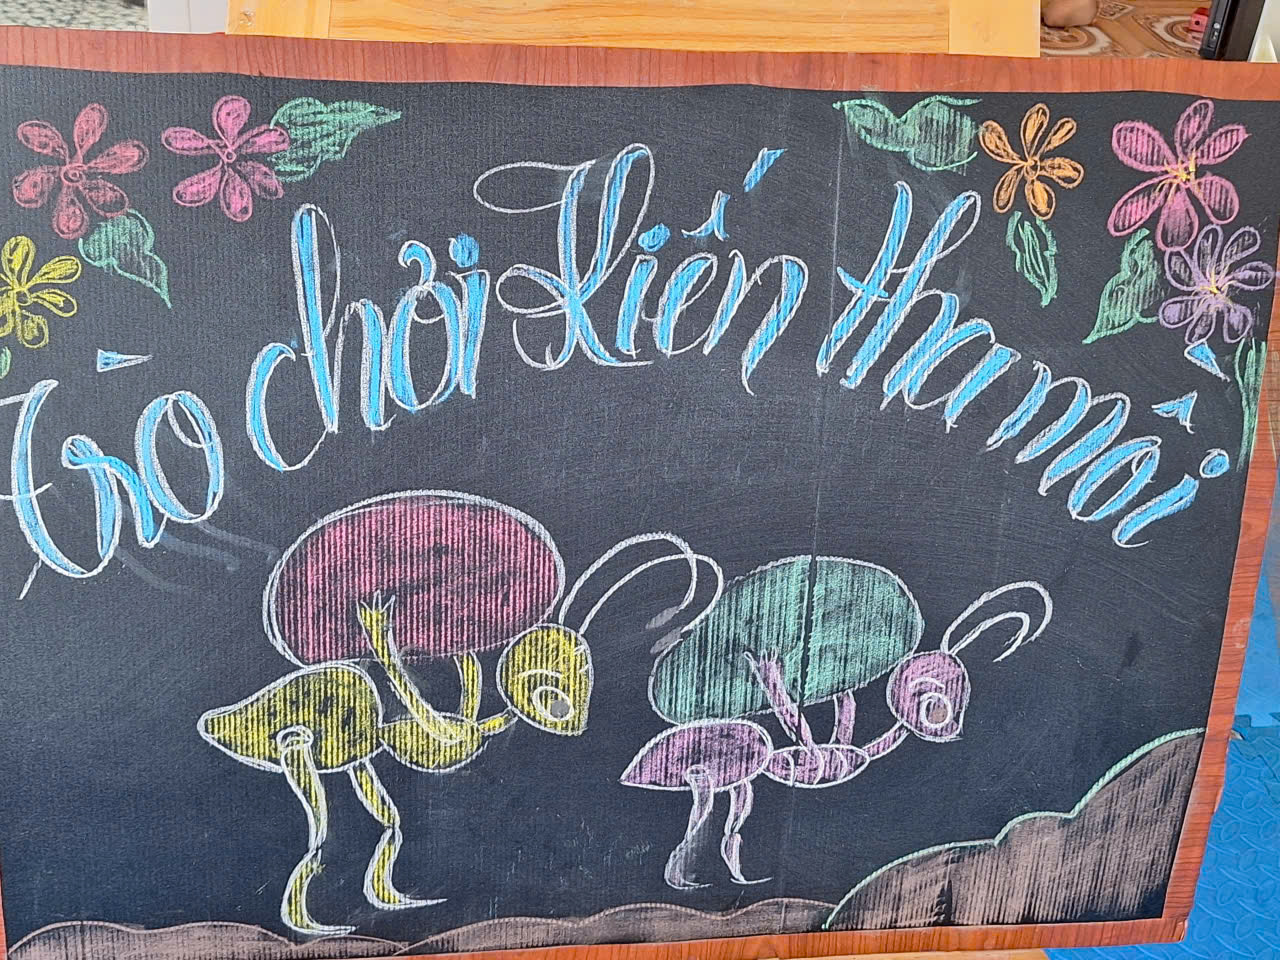 Trò chơi Kiến tha mồi